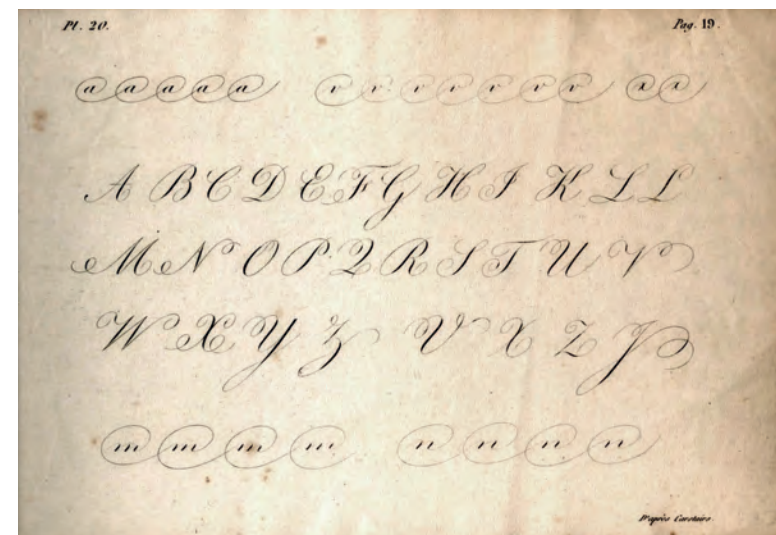 Pl. 20.
Pag. 19.
a a a a a v v v v v v v x x
A B C D E F G H I K L L
M N O P Q R S T U V
W X Y Z V X Z P
m m m m n n n n
D'après Carstairs.